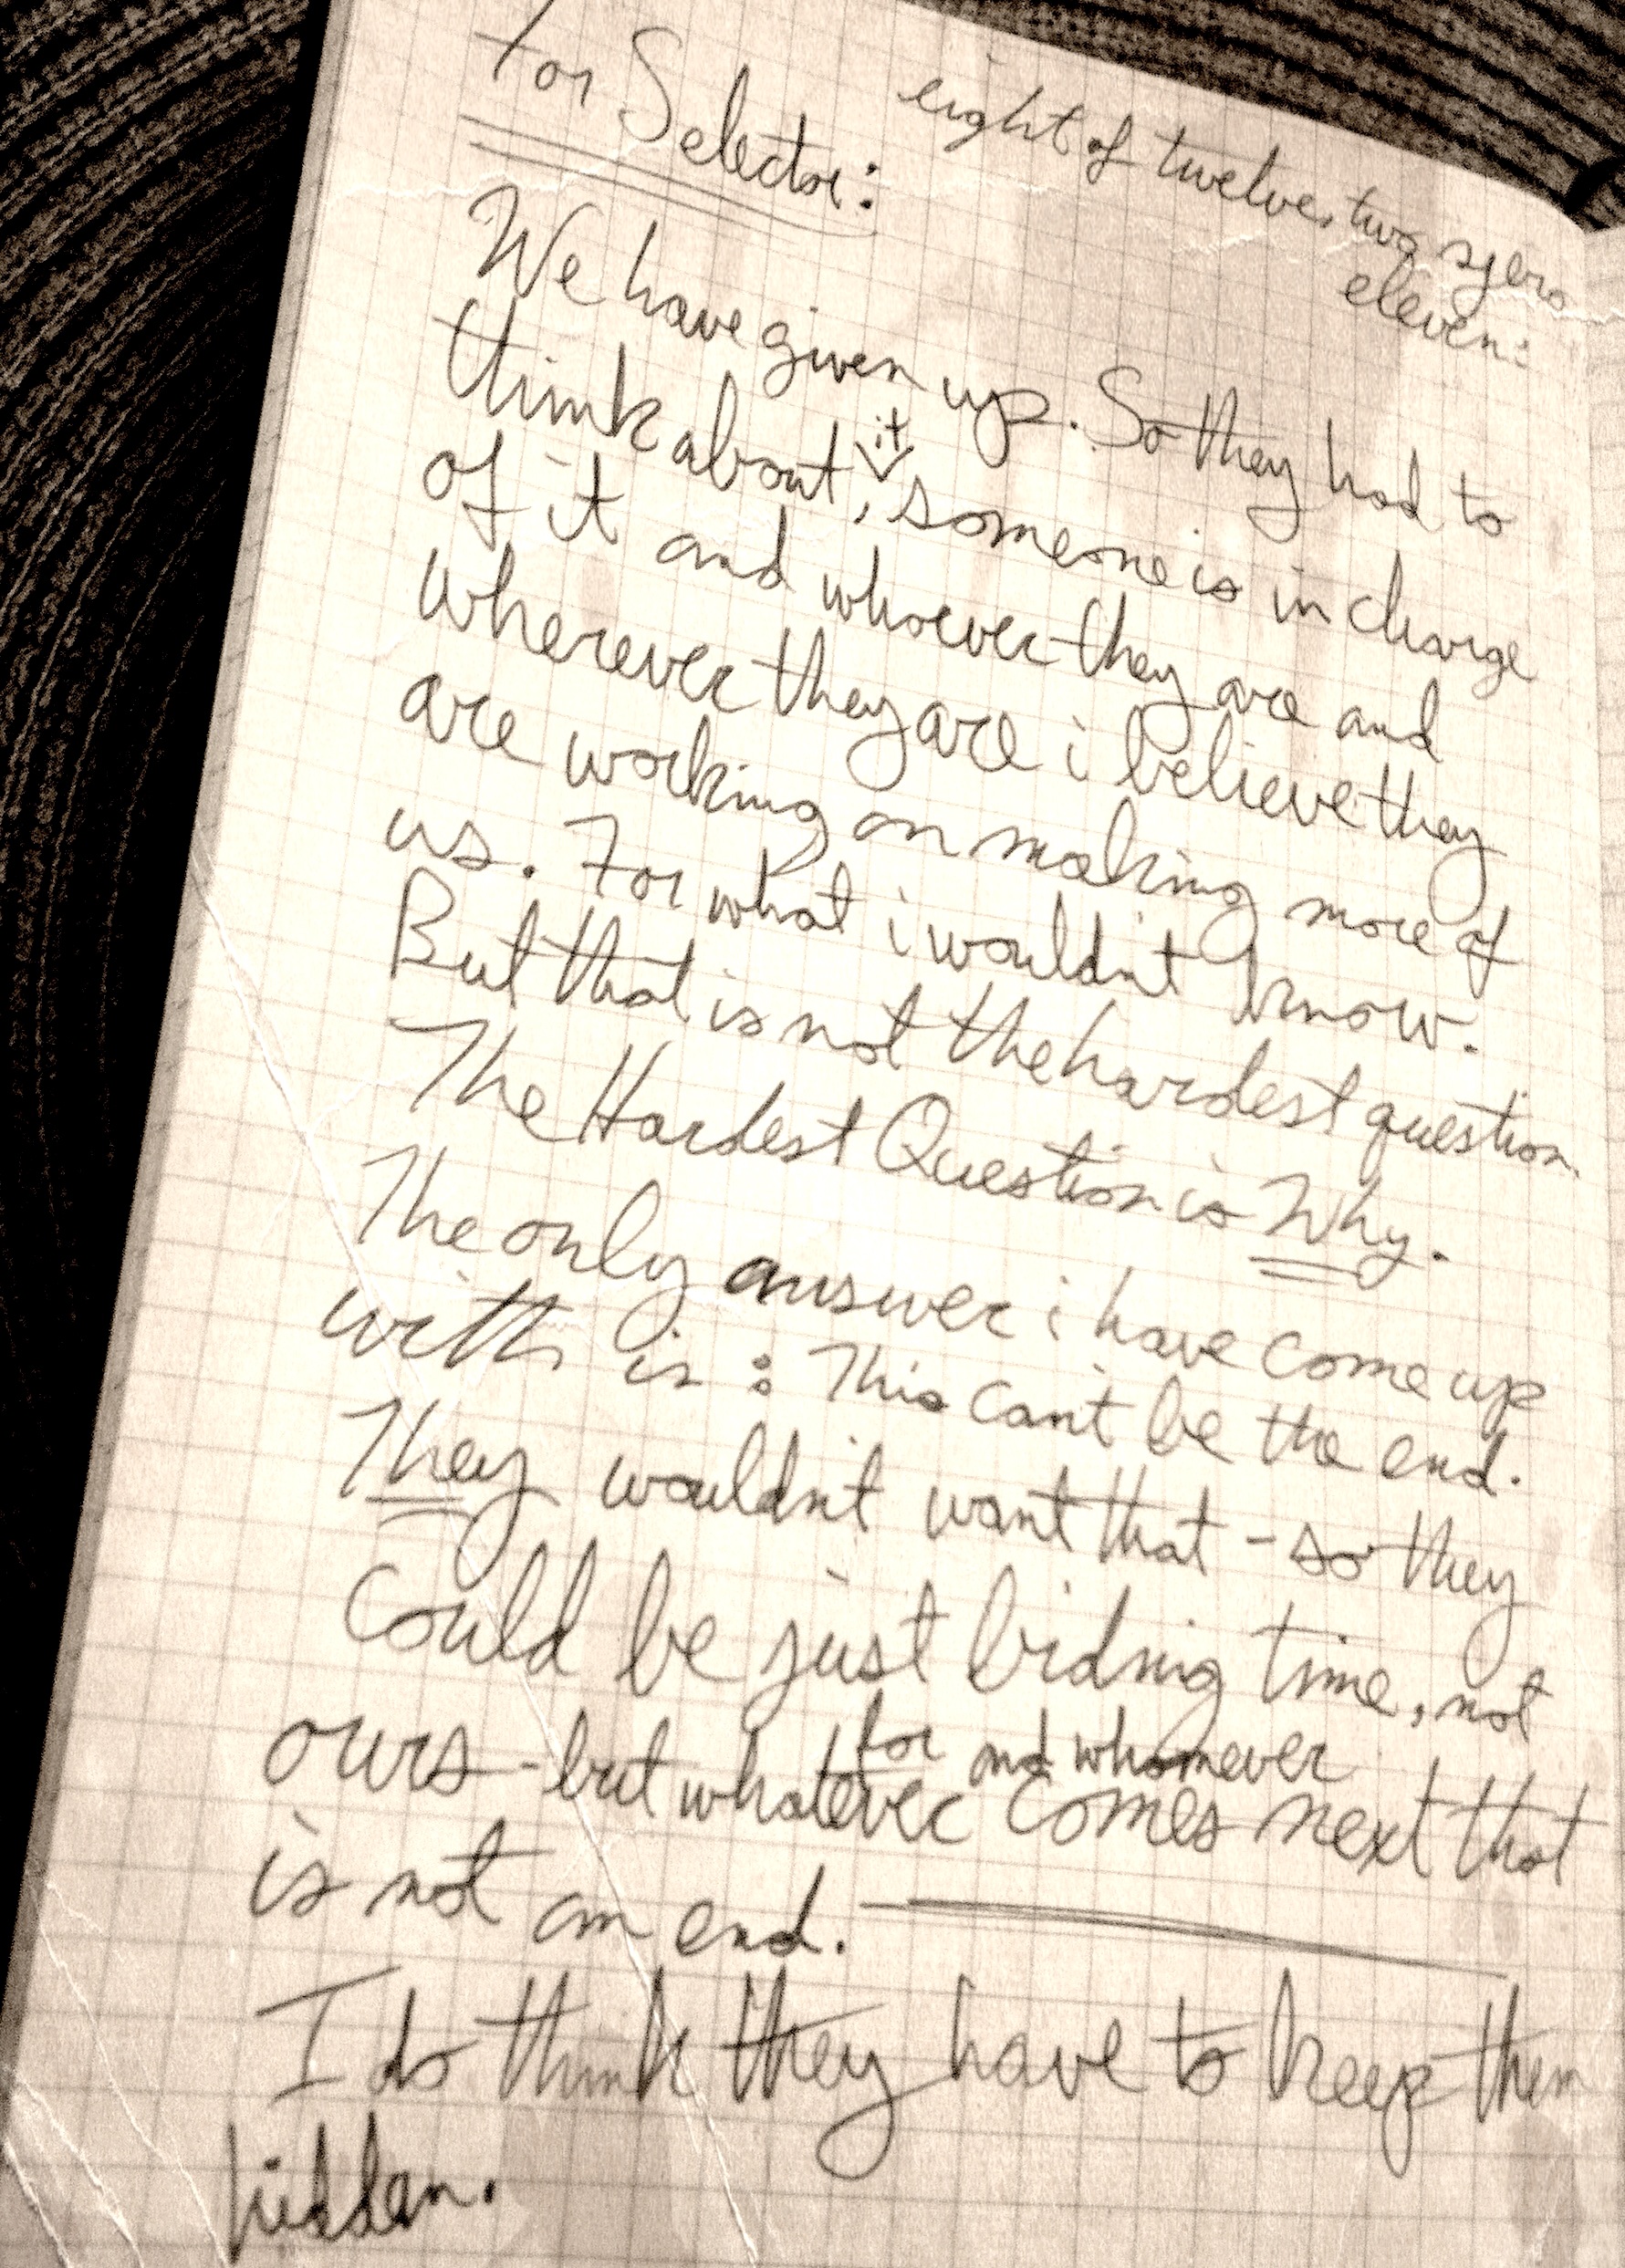 For Selector:
eight of twelve, two zero
eleven:
We have given up. So they had to
think about it, someone is in charge
of it and whoever they are and
wherever they are i believe they
are working on making more of
us. For what i wouldn't know.
But that is not the hardest question.
The Hardest Question is Why.
The only answer i have come up
with is: This can't be the end.
They wouldn't want that - so they
could be just biding time, not
ours - but for whatever and whomever comes next that
is not an end.
I do think they have to keep them
hidden.